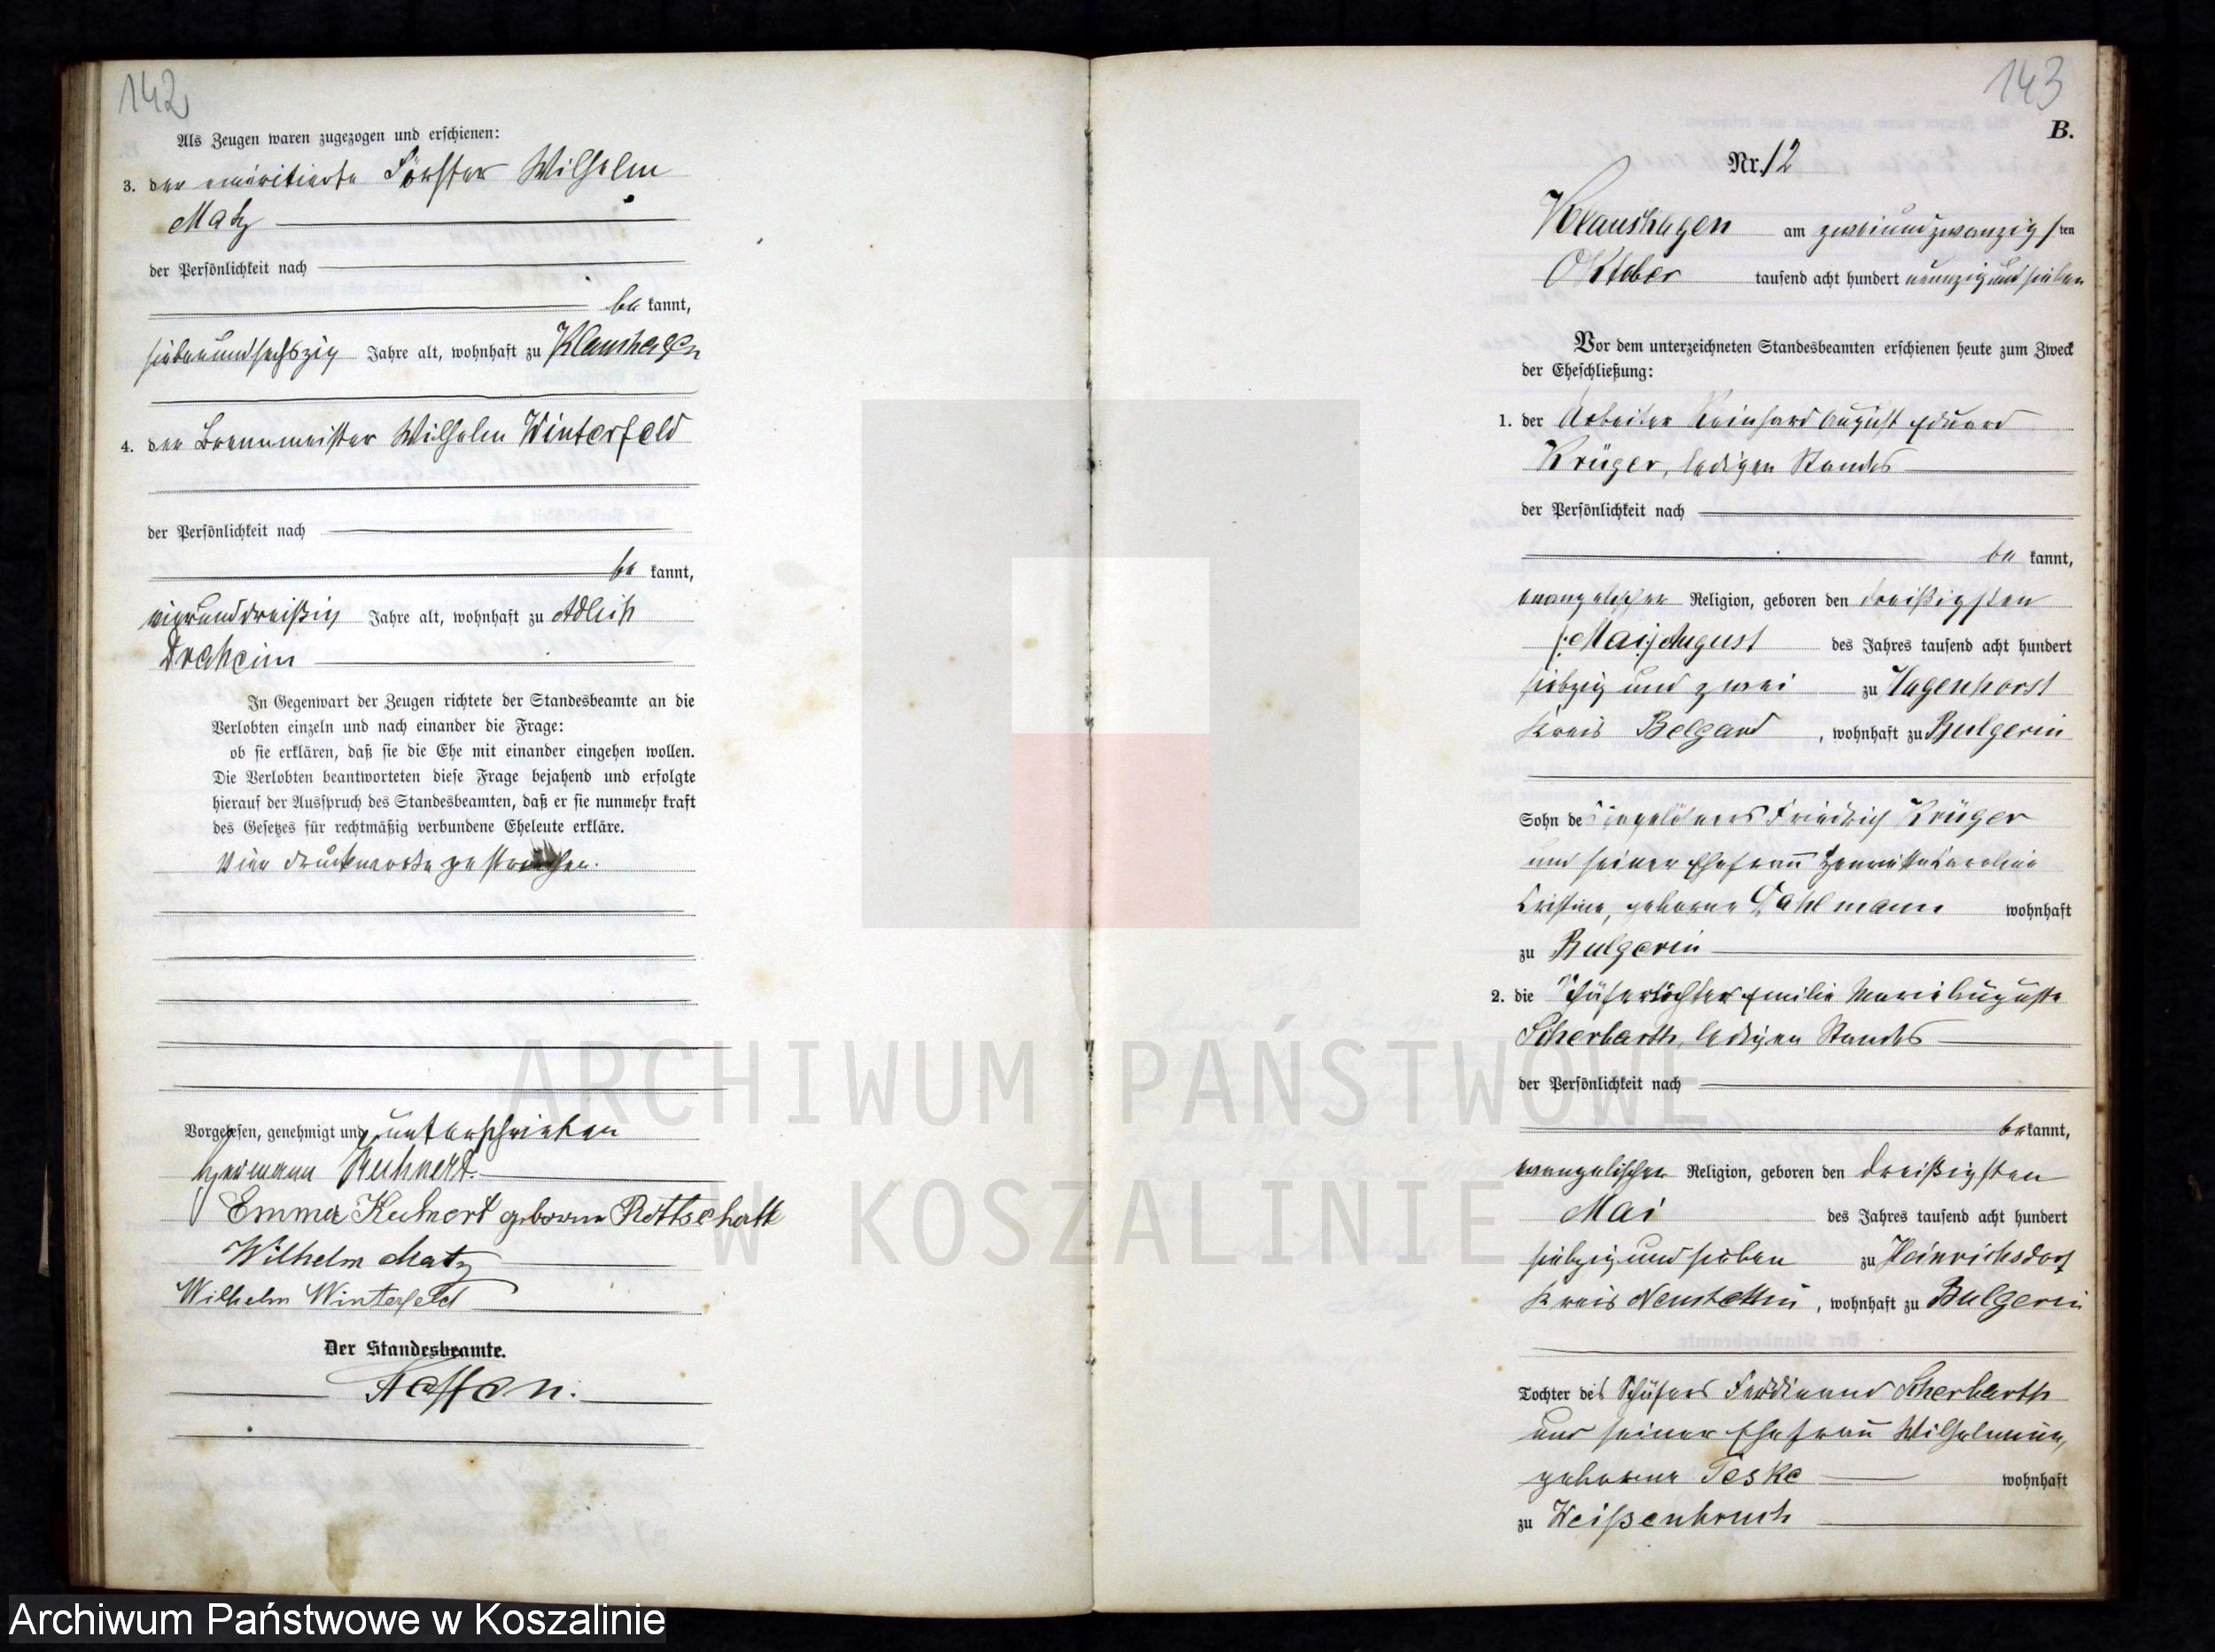 142
Als Zeugen waren zugezogen und erschienen:
3. der emeritierte Förster Wilhelm
Matz
der Persönlichkeit nach
be kannt,
siebenundsechszig Jahre alt, wohnhaft zu Klaushagen
4. der Brennmeister Wilhelm Winterfeld
der Persönlichkeit nach
be kannt,
vierunddreißig Jahre alt, wohnhaft zu Adlich
Draheim
In Gegenwart der Zeugen richtete der Standesbeamte an die
Verlobten einzeln und nach einander die Frage:
ob sie erklären, daß sie die Ehe mit einander eingehen wollen.
Die Verlobten beantworteten diese Frage bejahend und erfolgte
hierauf der Ausspruch des Standesbeamten, daß er sie nunmehr kraft
des Gesetzes für rechtmäßig verbundene Eheleute erkläre.
Vier Druckworte gestrichen.
Vorgelesen, genehmigt und unterschrieben
Hermann Kuhnert.
Emma Kuhnert geborne Rottschalk
Wilhelm Matz
Wilhelm Winterfeld
Der Standesbeamte.
143
B.
Nr. 12
Klaushagen am zweiundzwanzigsten
Oktober tausend acht hundert neunzig und sieben
Vor dem unterzeichneten Standesbeamten erschienen heute zum Zweck
der Eheschließung:
1. der Arbeiter Reinhard August Eduard
Krüger, ledigen Standes
der Persönlichkeit nach
be kannt,
evangelischer Religion, geboren den dreißigsten
(:Mai:) August des Jahres tausend acht hundert
siebzig und zwei zu Hagenhorst
Kreis Belgard, wohnhaft zu Bulgerin
Sohn de Friedrich Krüger
und seiner Ehefrau Henriette Caroline
Cristine, geborene Dahlmann wohnhaft
zu Bulgerin
2. die Schäfertochter Emilie Marie Auguste
Scherbarth, ledigen Standes
der Persönlichkeit nach
bekannt,
evangelischer Religion, geboren den dreißigsten
Mai des Jahres tausend acht hundert
siebzig und sieben zu Heinrichsdorf
Kreis Neustettin, wohnhaft zu Bulgerin
Tochter des Schäfers Ferdinand Scherbarth
und seiner Ehefrau Wilhelmine,
geborene Teske wohnhaft
zu Weißenbruch
ARCHIWUM PAŃSTWOWE
W KOSZALINIE
Archiwum Państwowe w Koszalinie